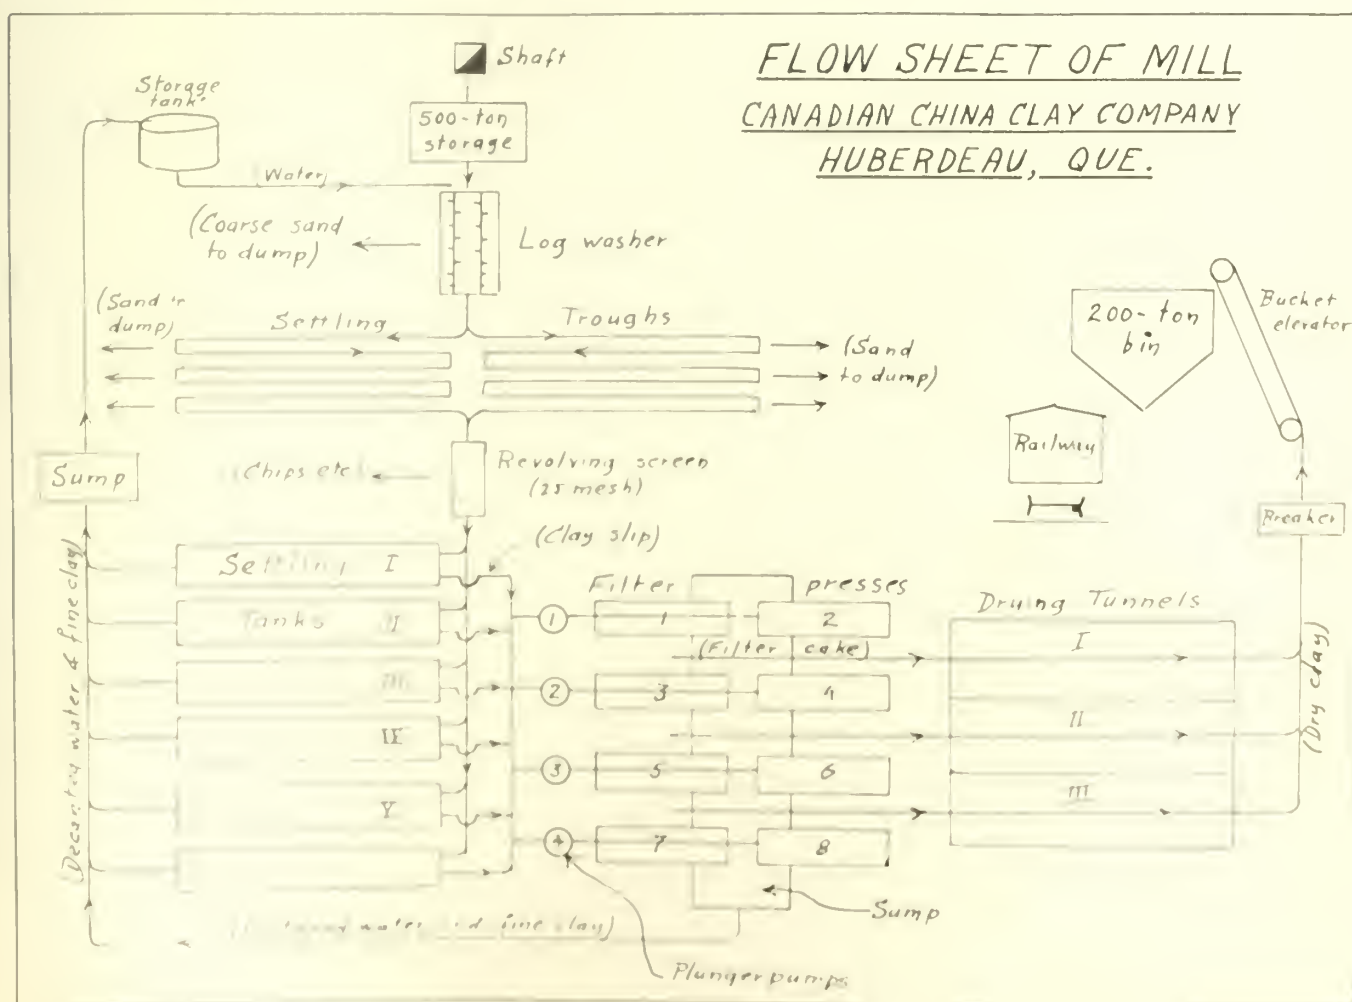 FLOW SHEET OF MILL
CANADIAN CHINA CLAY COMPANY
HUBERDEAU, QUE.
Shaft
500-ton
storage
Storage
tank
Water
(Coarse sand
to dump)
Log washer
(Sand
dump)
Settling Troughs
(Sand
to dump)
200-ton
bin
Bucket
elevator
Railway
Breaker
Sump
(Chips etc)
Revolving screen
(25 mesh)
(Clay slip)
Settling I
Tanks II
III
IV
V
(Decanted water & fine clay)
Filter presses
1
2
3
4
1
2
3
4
5
6
7
8
(Filter cake)
Druing Tunnels
I
II
III
(Dry clay)
Sump
water and fine clay)
Plunger pumps